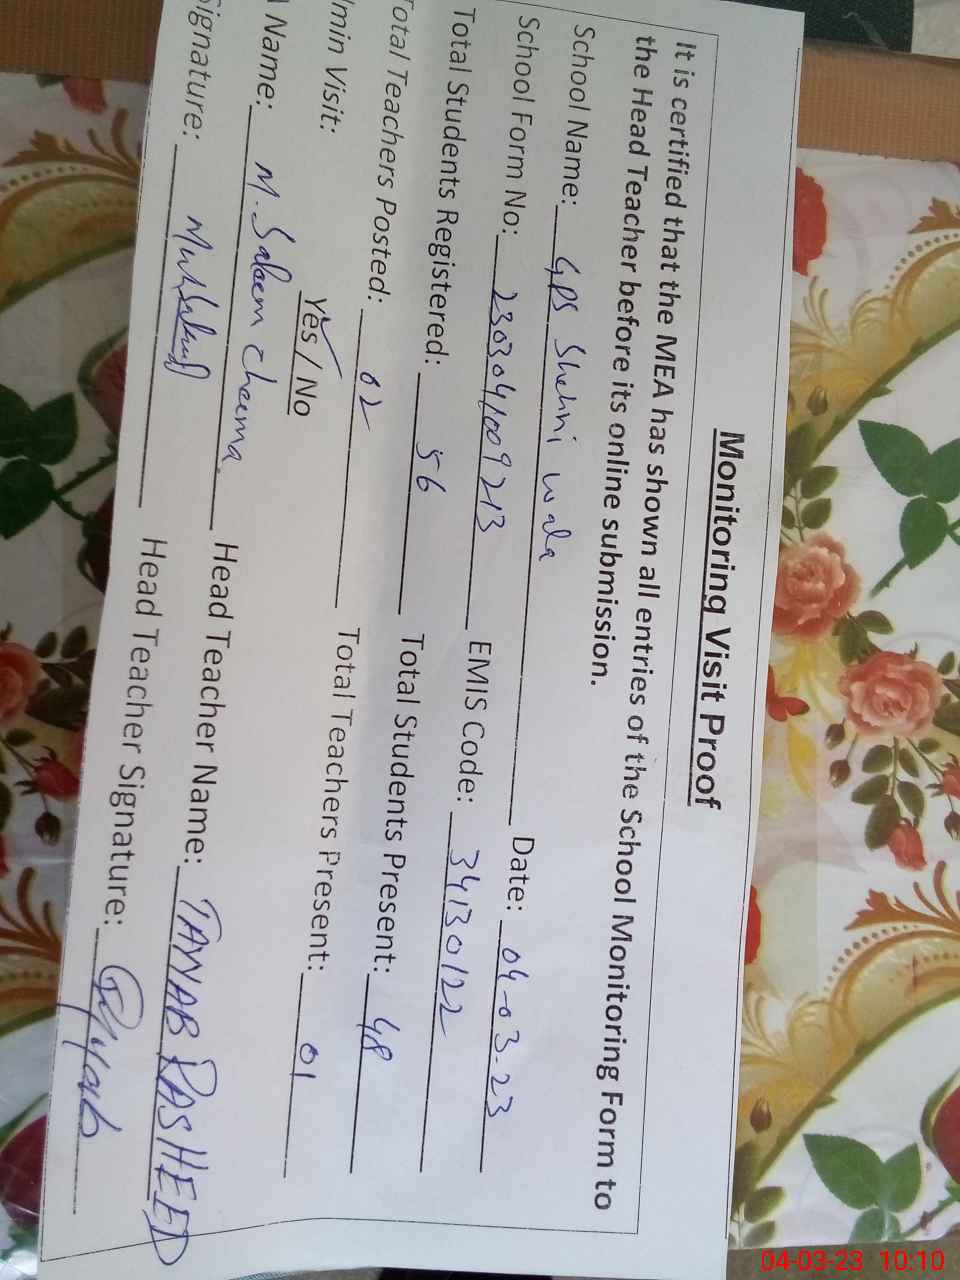 Monitoring Visit Proof
It is certified that the MEA has shown all entries of the School Monitoring Form to
the Head Teacher before its online submission.
School Name: GPS Shehni wala Date: 04-03-23
School Form No: 230304/009213 EMIS Code: 34130122
Total Students Registered: 56 Total Students Present: 48
Total Teachers Posted: 02 Total Teachers Present: 01
min Visit: Yes / No
Name: M. Saleem Cheema Head Teacher Name: TANAB RASHEED
Signature: Head Teacher Signature:
04-03-23 10:10